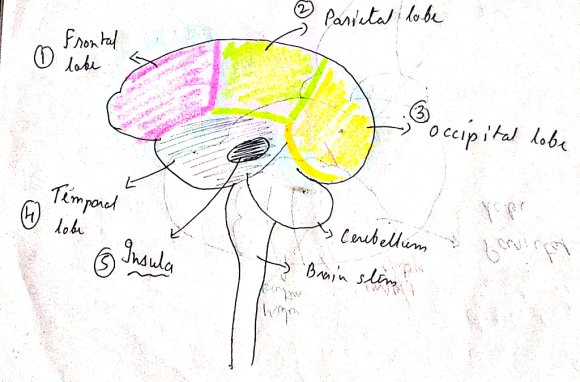 ② Parietal lobe
① Frontal
lobe
③ Occipital lobe
④ Temporal
lobe
⑤ Insula
Cerebellum
Brain stem